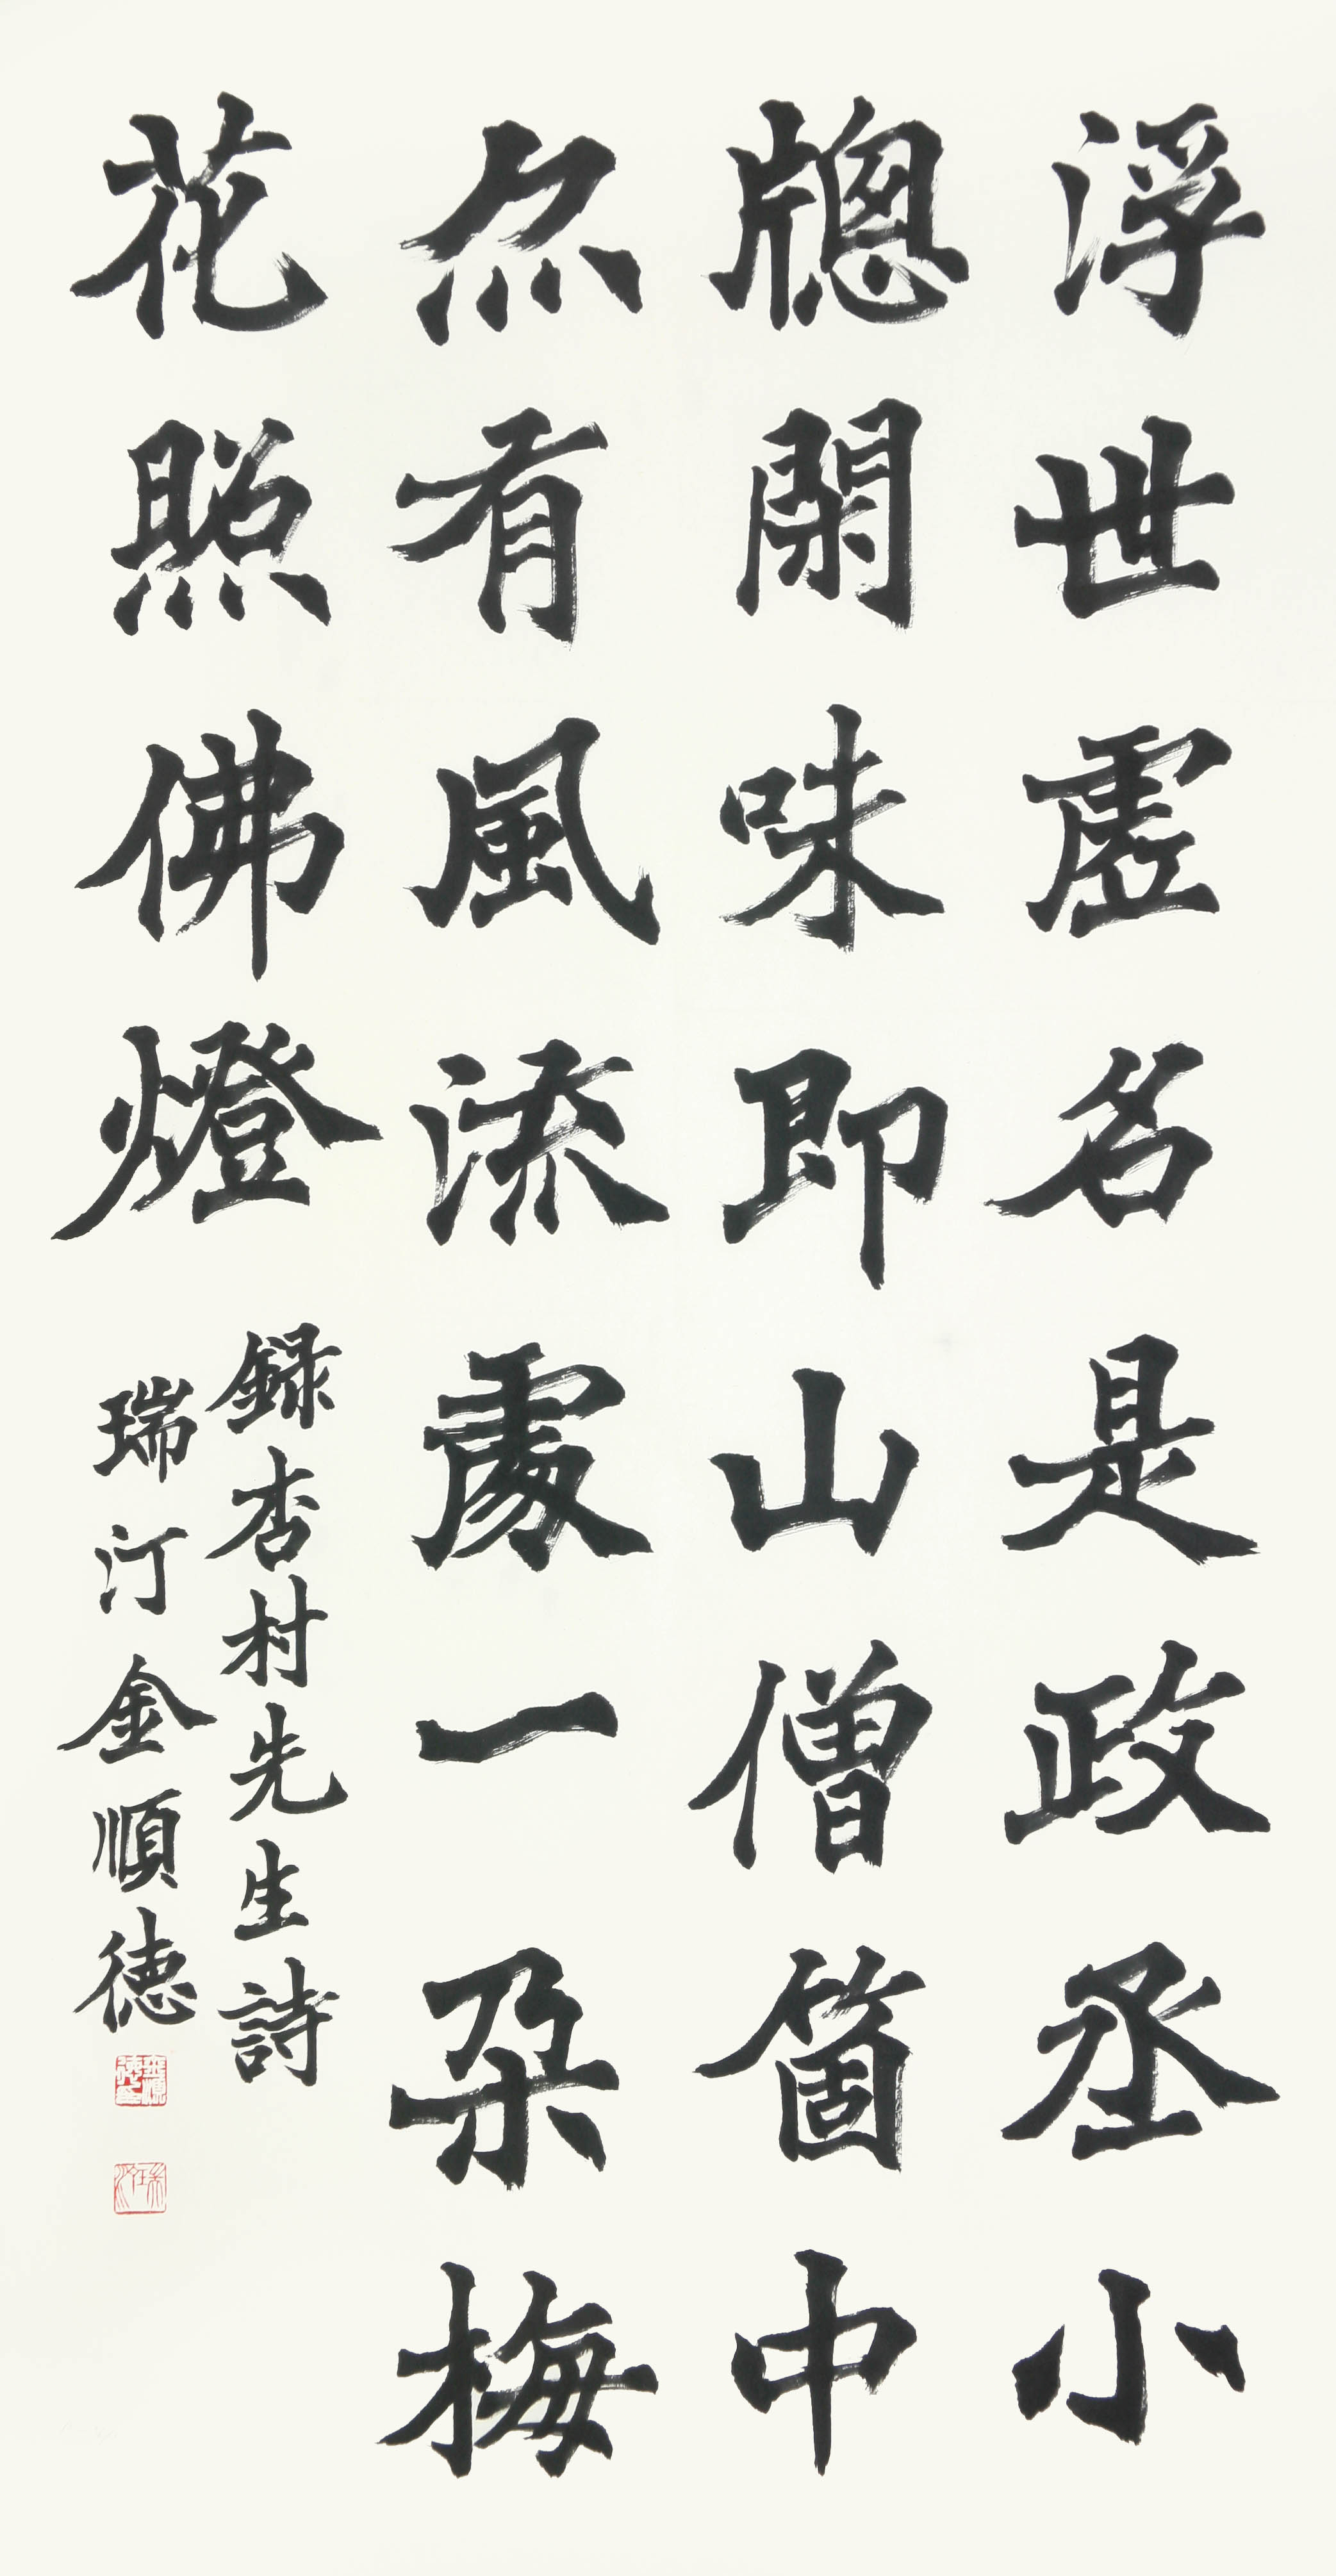 浮世虛名是政丞小
牕閑味即山僧箇中
尒有風流處一朶梅
花照佛燈
録杏村先生詩
瑞汀金順德